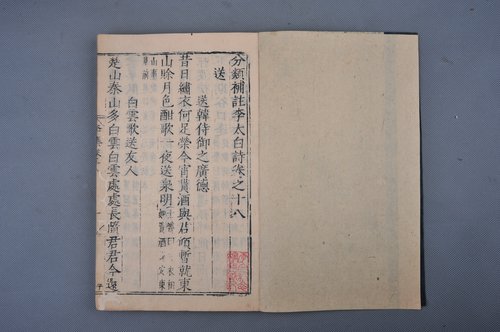 分類補註李太白詩卷之十八
送
送韓侍御之廣德
昔日繡衣何足榮今宵貰酒與君傾暫就東
山賒月色酣歌一夜送泉明
白雲歌送友人
楚山秦山多白雲白雲處處長隨君君今還